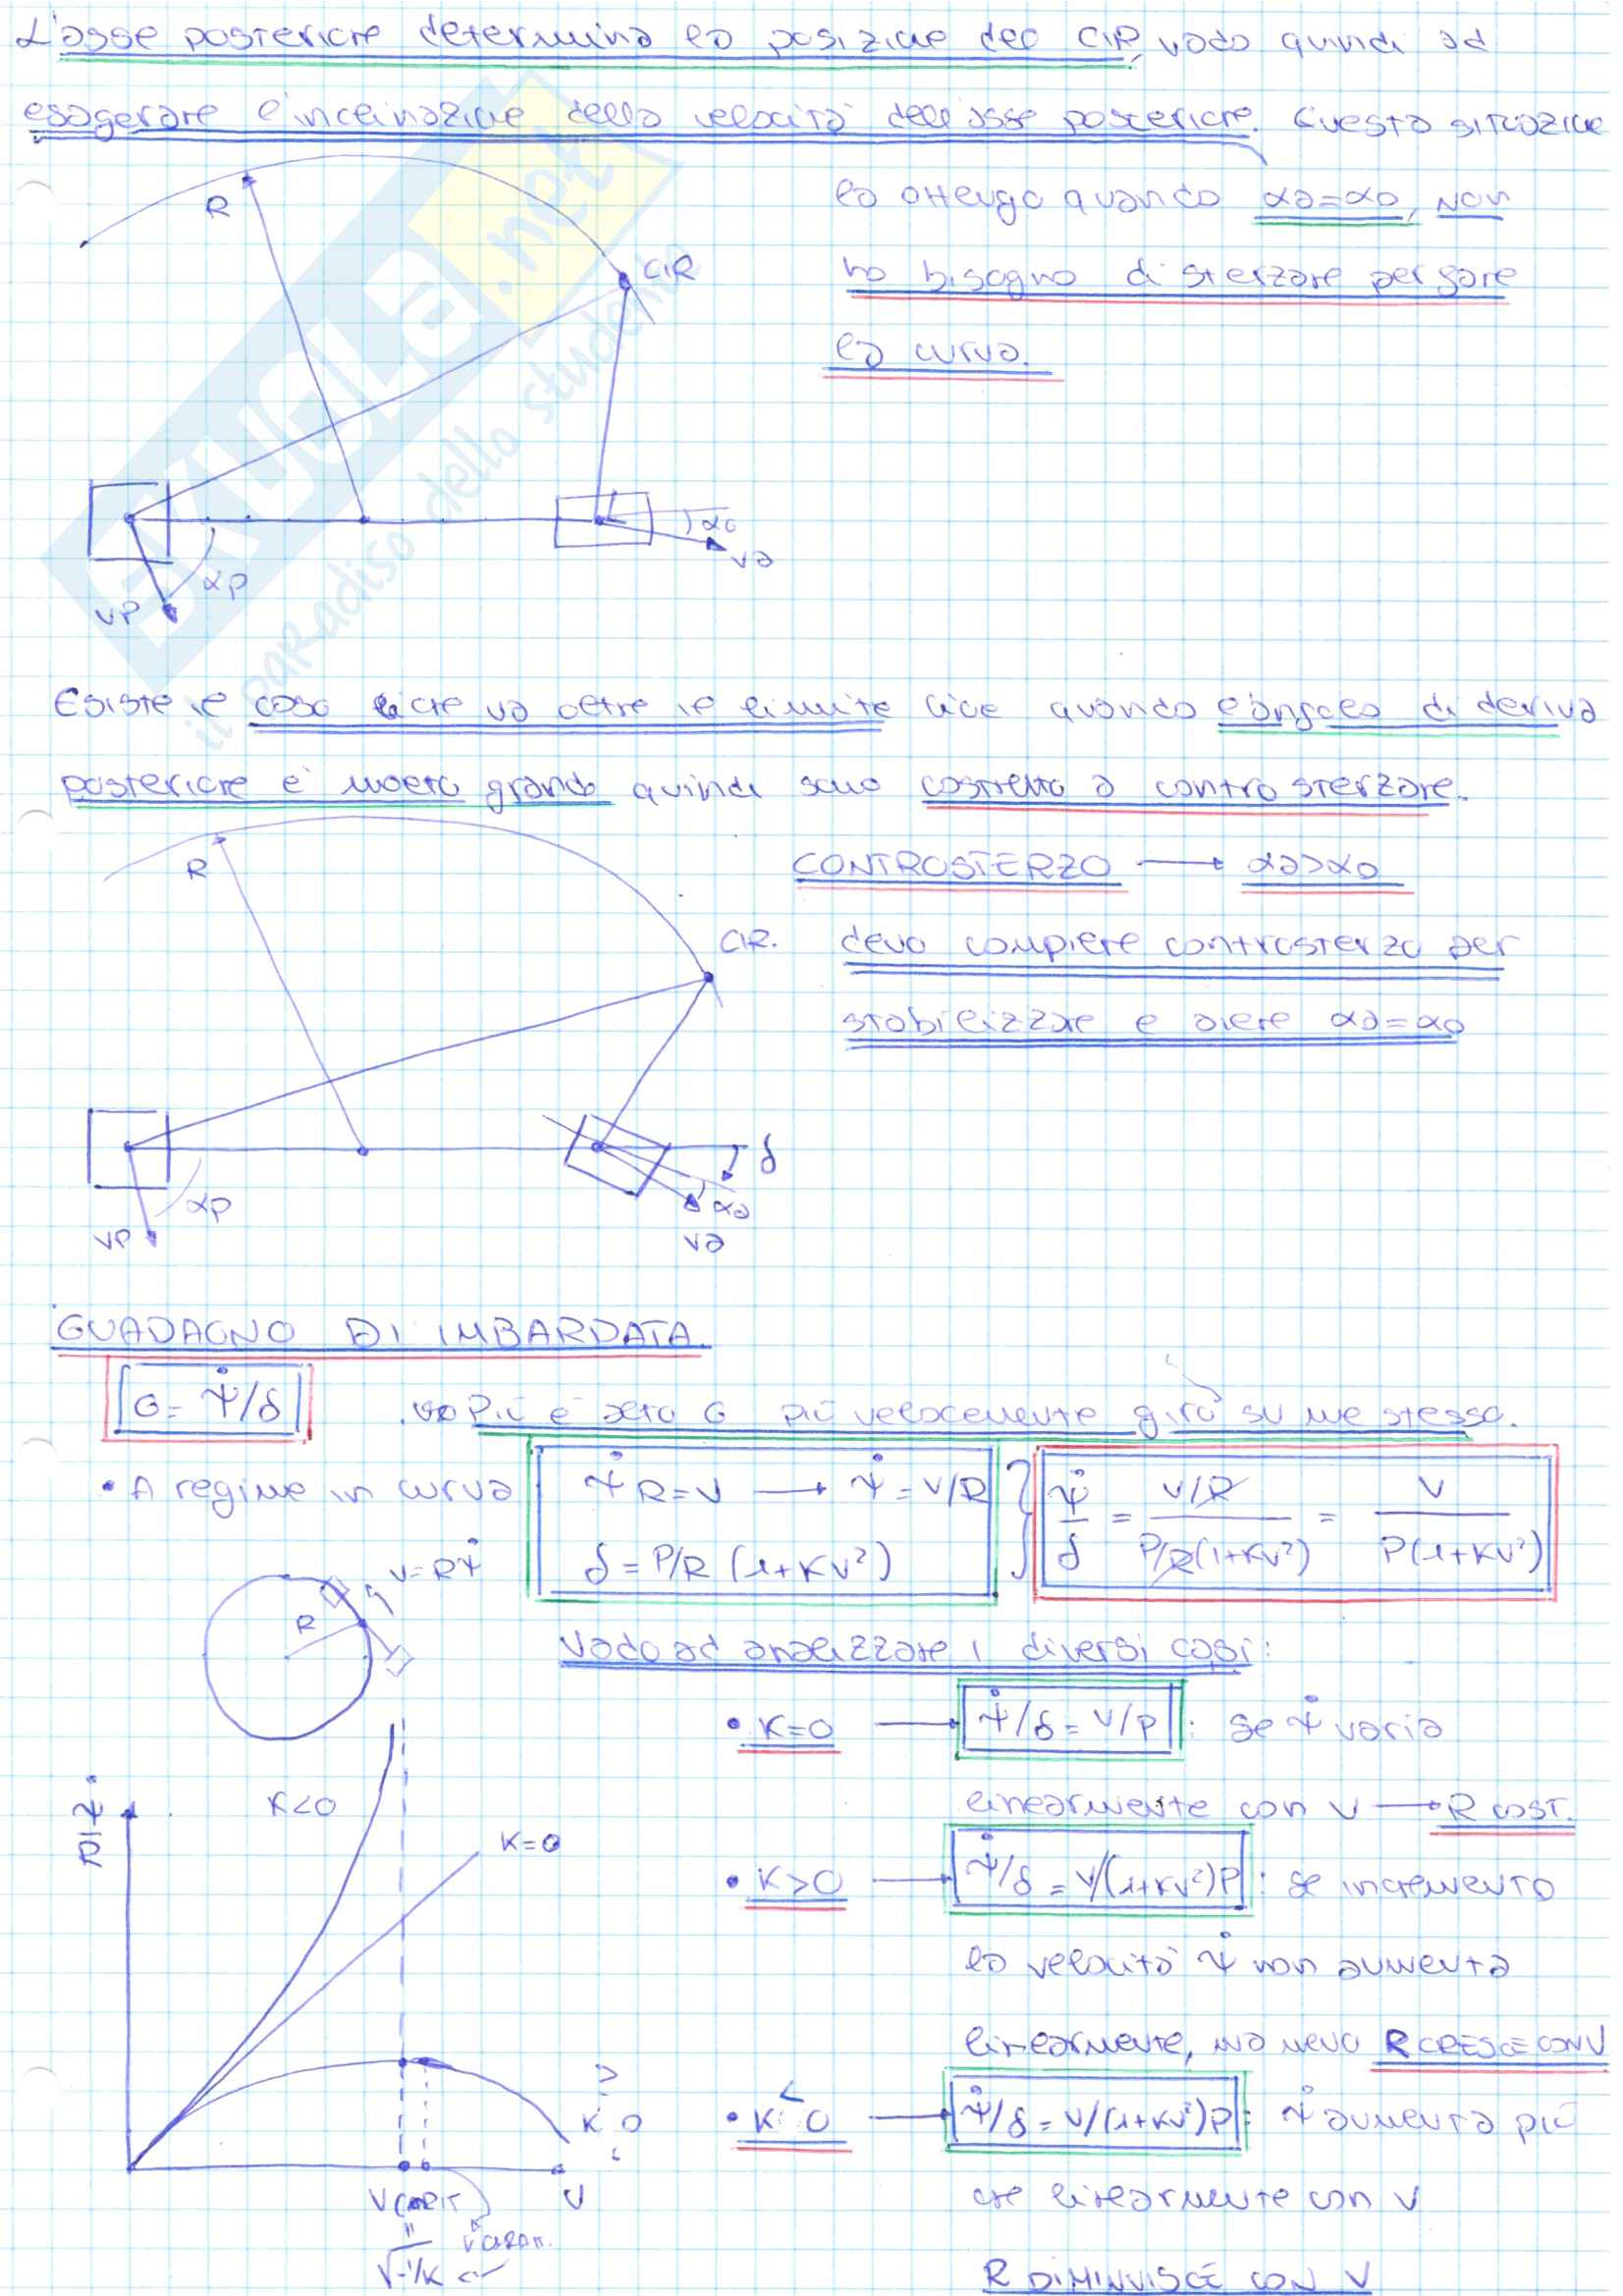 L'asse posteriore determina la posizione del CIR, vado quindi ad
esagerare l'inclinazione della velocità dell'asse posteriore. Questa situazione
la ottengo quando αa=αo, non
ho bisogno di sterzare per fare
la curva.
R
CIR
αo
va
αp
vp
SKUOLA.net
il paradiso dello studente
Esiste il caso che va oltre il limite cioè quando l'angolo di deriva
posteriore è molto grande quindi sono costretto a contro sterzare.
CONTROSTERZO → αa>αo
devo compiere controsterzo per
stabilizzare e avere αa=αo
R
CIR.
δ
αa
va
αp
vp
GUADAGNO DI IMBARDATA.
G = ψ̇/δ
Più è alto G più velocemente giro su me stesso.
• A regime in curva
ψ̇R=V → ψ̇=V/R
δ = P/R (1+KV²)
ψ̇/δ = V/R / P/R(1+KV²) = V / P(1+KV²)
V=Rψ̇
R
Vado ad analizzare i diversi casi:
• K=0 → ψ̇/δ = V/P : se ψ̇ varia
linearmente con V → R COST.
• K>0 → ψ̇/δ = V/(1+KV²)P : se incremento
la velocità ψ̇ non aumenta
linearmente, ma meno R CRESCE CON V
• K<0 → ψ̇/δ = V/(1+KV²)P : ψ̇ aumenta più
che linearmente con V
R DIMINUISCE CON V
K<0
K=0
K 0
V
V CRIT
√-1/K